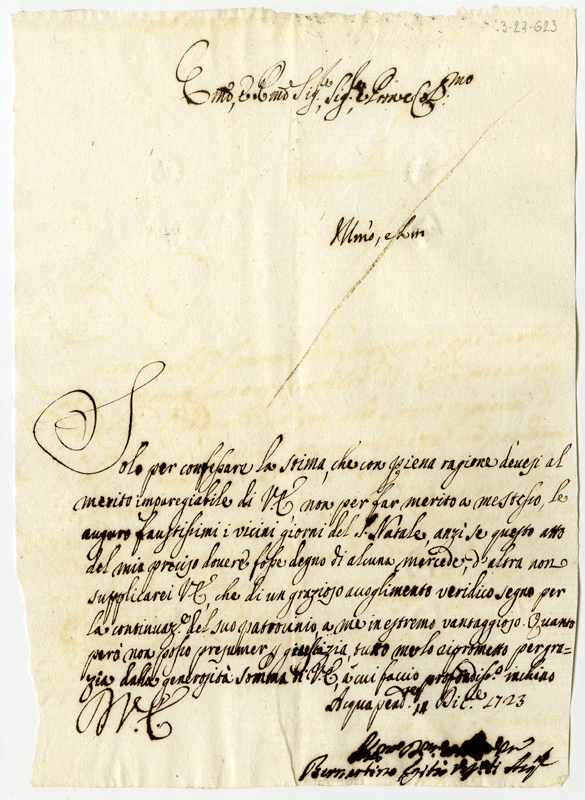 3-27-623
Emo, e Rmo Sig.re, Sig.re e Prone Col.mo
Illmo, e
Solo per confessare la stima, che con piena ragione devesi al
merito impareggiabile di V.E. non per far merito a me stesso, le
auguro faustissimi i vicini giorni del S. Natale, anzi se questo atto
del mio preciso dovere fosse degno di alcuna mercede, d'altra non
supplicarei V.E. che di un grazioso accoglimento veridico segno per
la continuaz.e del suo patrocinio a me in estremo vantaggioso. Quanto
però non posso presumer p giustizia, tutto me lo riprometto per gra-
zia dalla generosità somma di V.E., a cui faccio profondiss.o inchino
D V.E.
Acquapend.te 11 Dic.e 1723
Bernardino Egidio